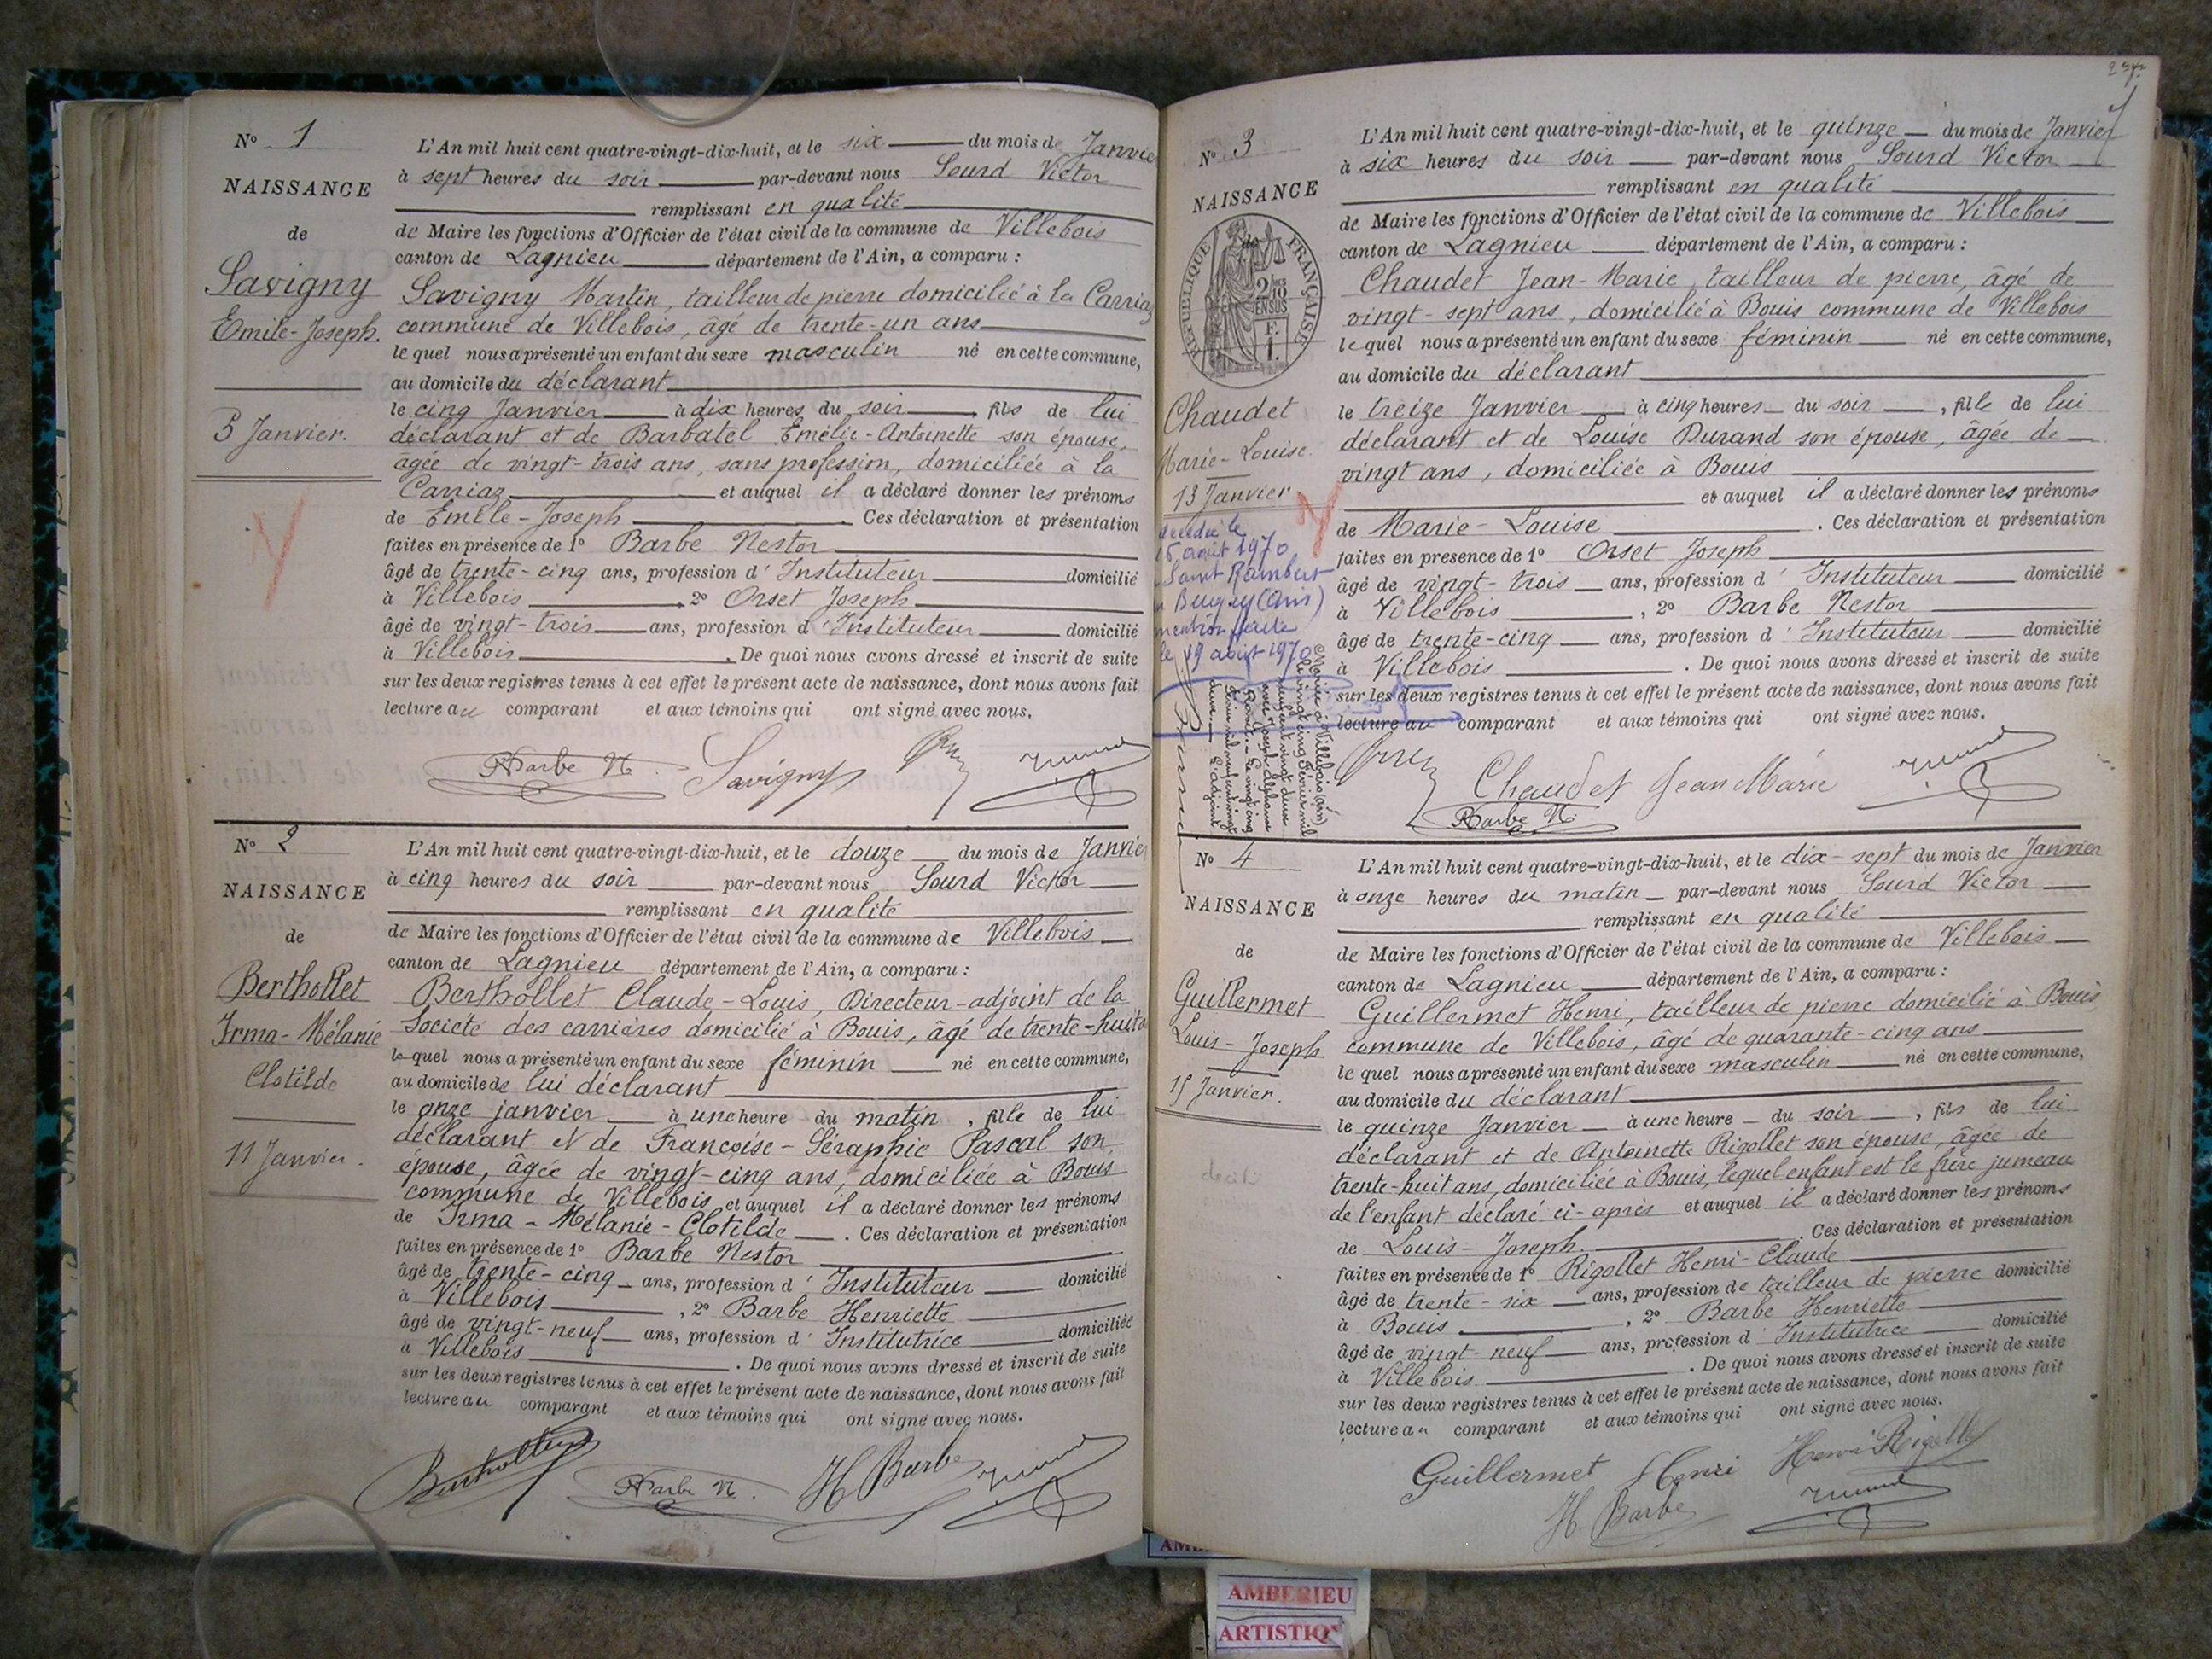 N° 1
NAISSANCE
de
Savigny
Emile-Joseph.
5 Janvier.
L'An mil huit cent quatre-vingt-dix-huit, et le six du mois de Janvier
à sept heures du soir par-devant nous Sourd Victor
remplissant en qualité
de Maire les fonctions d'Officier de l'état civil de la commune de Villebois
canton de Lagnieu département de l'Ain, a comparu :
Savigny Martin, tailleur de pierre domicilié à la Carriaz
commune de Villebois, âgé de trente-un ans
lequel nous a présenté un enfant du sexe masculin né en cette commune,
au domicile du déclarant
le cinq Janvier à dix heures du soir, fils de lui
déclarant et de Barbatel Emélie-Antoinette son épouse,
âgée de vingt-trois ans, sans profession, domiciliée à la
Carriaz et auquel il a déclaré donner les prénoms
de Emile-Joseph. Ces déclaration et présentation
faites en présence de 1° Barbe Nestor
âgé de trente-cinq ans, profession d'Instituteur domicilié
à Villebois, 2° Orset Joseph
âgé de vingt-trois ans, profession d'Instituteur domicilié
à Villebois. De quoi nous avons dressé et inscrit de suite
sur les deux registres tenus à cet effet le présent acte de naissance, dont nous avons fait
lecture au comparant et aux témoins qui ont signé avec nous.
Barbe N. Savigny
N° 2
NAISSANCE
de
Berthollet
Irma-Mélanie
Clotilde
11 Janvier.
L'An mil huit cent quatre-vingt-dix-huit, et le douze du mois de Janvier
à cinq heures du soir par-devant nous Sourd Victor
remplissant en qualité
de Maire les fonctions d'Officier de l'état civil de la commune de Villebois
canton de Lagnieu département de l'Ain, a comparu :
Berthollet Claude-Louis, Directeur-adjoint de la
Société des carrières domicilié à Bouis, âgé de trente-huit
lequel nous a présenté un enfant du sexe féminin né en cette commune,
au domicile de lui déclarant
le onze janvier à une heure du matin, fille de lui
déclarant et de Françoise-Séraphie Pascal son
épouse, âgée de vingt-cinq ans, domiciliée à Bouis
commune de Villebois et auquel il a déclaré donner les prénoms
de Irma-Mélanie-Clotilde. Ces déclaration et présentation
faites en présence de 1° Barbe Nestor
âgé de trente-cinq ans, profession d'Instituteur domicilié
à Villebois, 2° Barbe Henriette
âgé de vingt-neuf ans, profession d'Institutrice domiciliée
à Villebois. De quoi nous avons dressé et inscrit de suite
sur les deux registres tenus à cet effet le présent acte de naissance, dont nous avons fait
lecture au comparant et aux témoins qui ont signé avec nous.
Berthollet Barbe N. H Barbe
N° 3
NAISSANCE
de
RÉPUBLIQUE FRANÇAISE
Chaudet
Marie-Louise.
13 Janvier
décédée le
août 1970
Saint Rambert
Bugey (Ain)
mention faite
le 19 août 1970
L'An mil huit cent quatre-vingt-dix-huit, et le quinze du mois de Janvier
à six heures du soir par-devant nous Sourd Victor
remplissant en qualité
de Maire les fonctions d'Officier de l'état civil de la commune de Villebois
canton de Lagnieu département de l'Ain, a comparu :
Chaudet Jean-Marie, tailleur de pierre, âgé de
vingt-sept ans, domicilié à Bouis commune de Villebois
lequel nous a présenté un enfant du sexe féminin né en cette commune,
au domicile du déclarant
le treize Janvier à cinq heures du soir, fille de lui
déclarant et de Louise Durand son épouse, âgée de
vingt ans, domiciliée à Bouis
et auquel il a déclaré donner les prénoms
de Marie-Louise. Ces déclaration et présentation
faites en présence de 1° Orset Joseph
âgé de vingt-trois ans, profession d'Instituteur domicilié
à Villebois, 2° Barbe Nestor
âgé de trente-cinq ans, profession d'Instituteur domicilié
à Villebois. De quoi nous avons dressé et inscrit de suite
sur les deux registres tenus à cet effet le présent acte de naissance, dont nous avons fait
lecture au comparant et aux témoins qui ont signé avec nous.
Chaudet Jean Marie
Barbe N.
N° 4
NAISSANCE
de
Guillermet
Louis-Joseph
15 Janvier.
L'An mil huit cent quatre-vingt-dix-huit, et le dix-sept du mois de Janvier
à onze heures du matin par-devant nous Sourd Victor
remplissant en qualité
de Maire les fonctions d'Officier de l'état civil de la commune de Villebois
canton de Lagnieu département de l'Ain, a comparu :
Guillermet Henri, tailleur de pierre domicilié à Bouis
commune de Villebois, âgé de quarante-cinq ans
lequel nous a présenté un enfant du sexe masculin né en cette commune,
au domicile du déclarant
le quinze Janvier à une heure du soir, fils de lui
déclarant et de Antoinette Rigollet son épouse, âgée de
trente-huit ans, domiciliée à Bouis, lequel enfant est le frère jumeau
de l'enfant déclaré ci-après et auquel il a déclaré donner les prénoms
de Louis-Joseph. Ces déclaration et présentation
faites en présence de 1° Rigollet Henri-Claude
âgé de trente-six ans, profession de tailleur de pierre domicilié
à Bouis, 2° Barbe Henriette
âgé de vingt-neuf ans, profession d'Institutrice domicilié
à Villebois. De quoi nous avons dressé et inscrit de suite
sur les deux registres tenus à cet effet le présent acte de naissance, dont nous avons fait
lecture au comparant et aux témoins qui ont signé avec nous.
Guillermet Henri Henri Rigollet
H. Barbe
AMBERIEU
ARTISTIQ